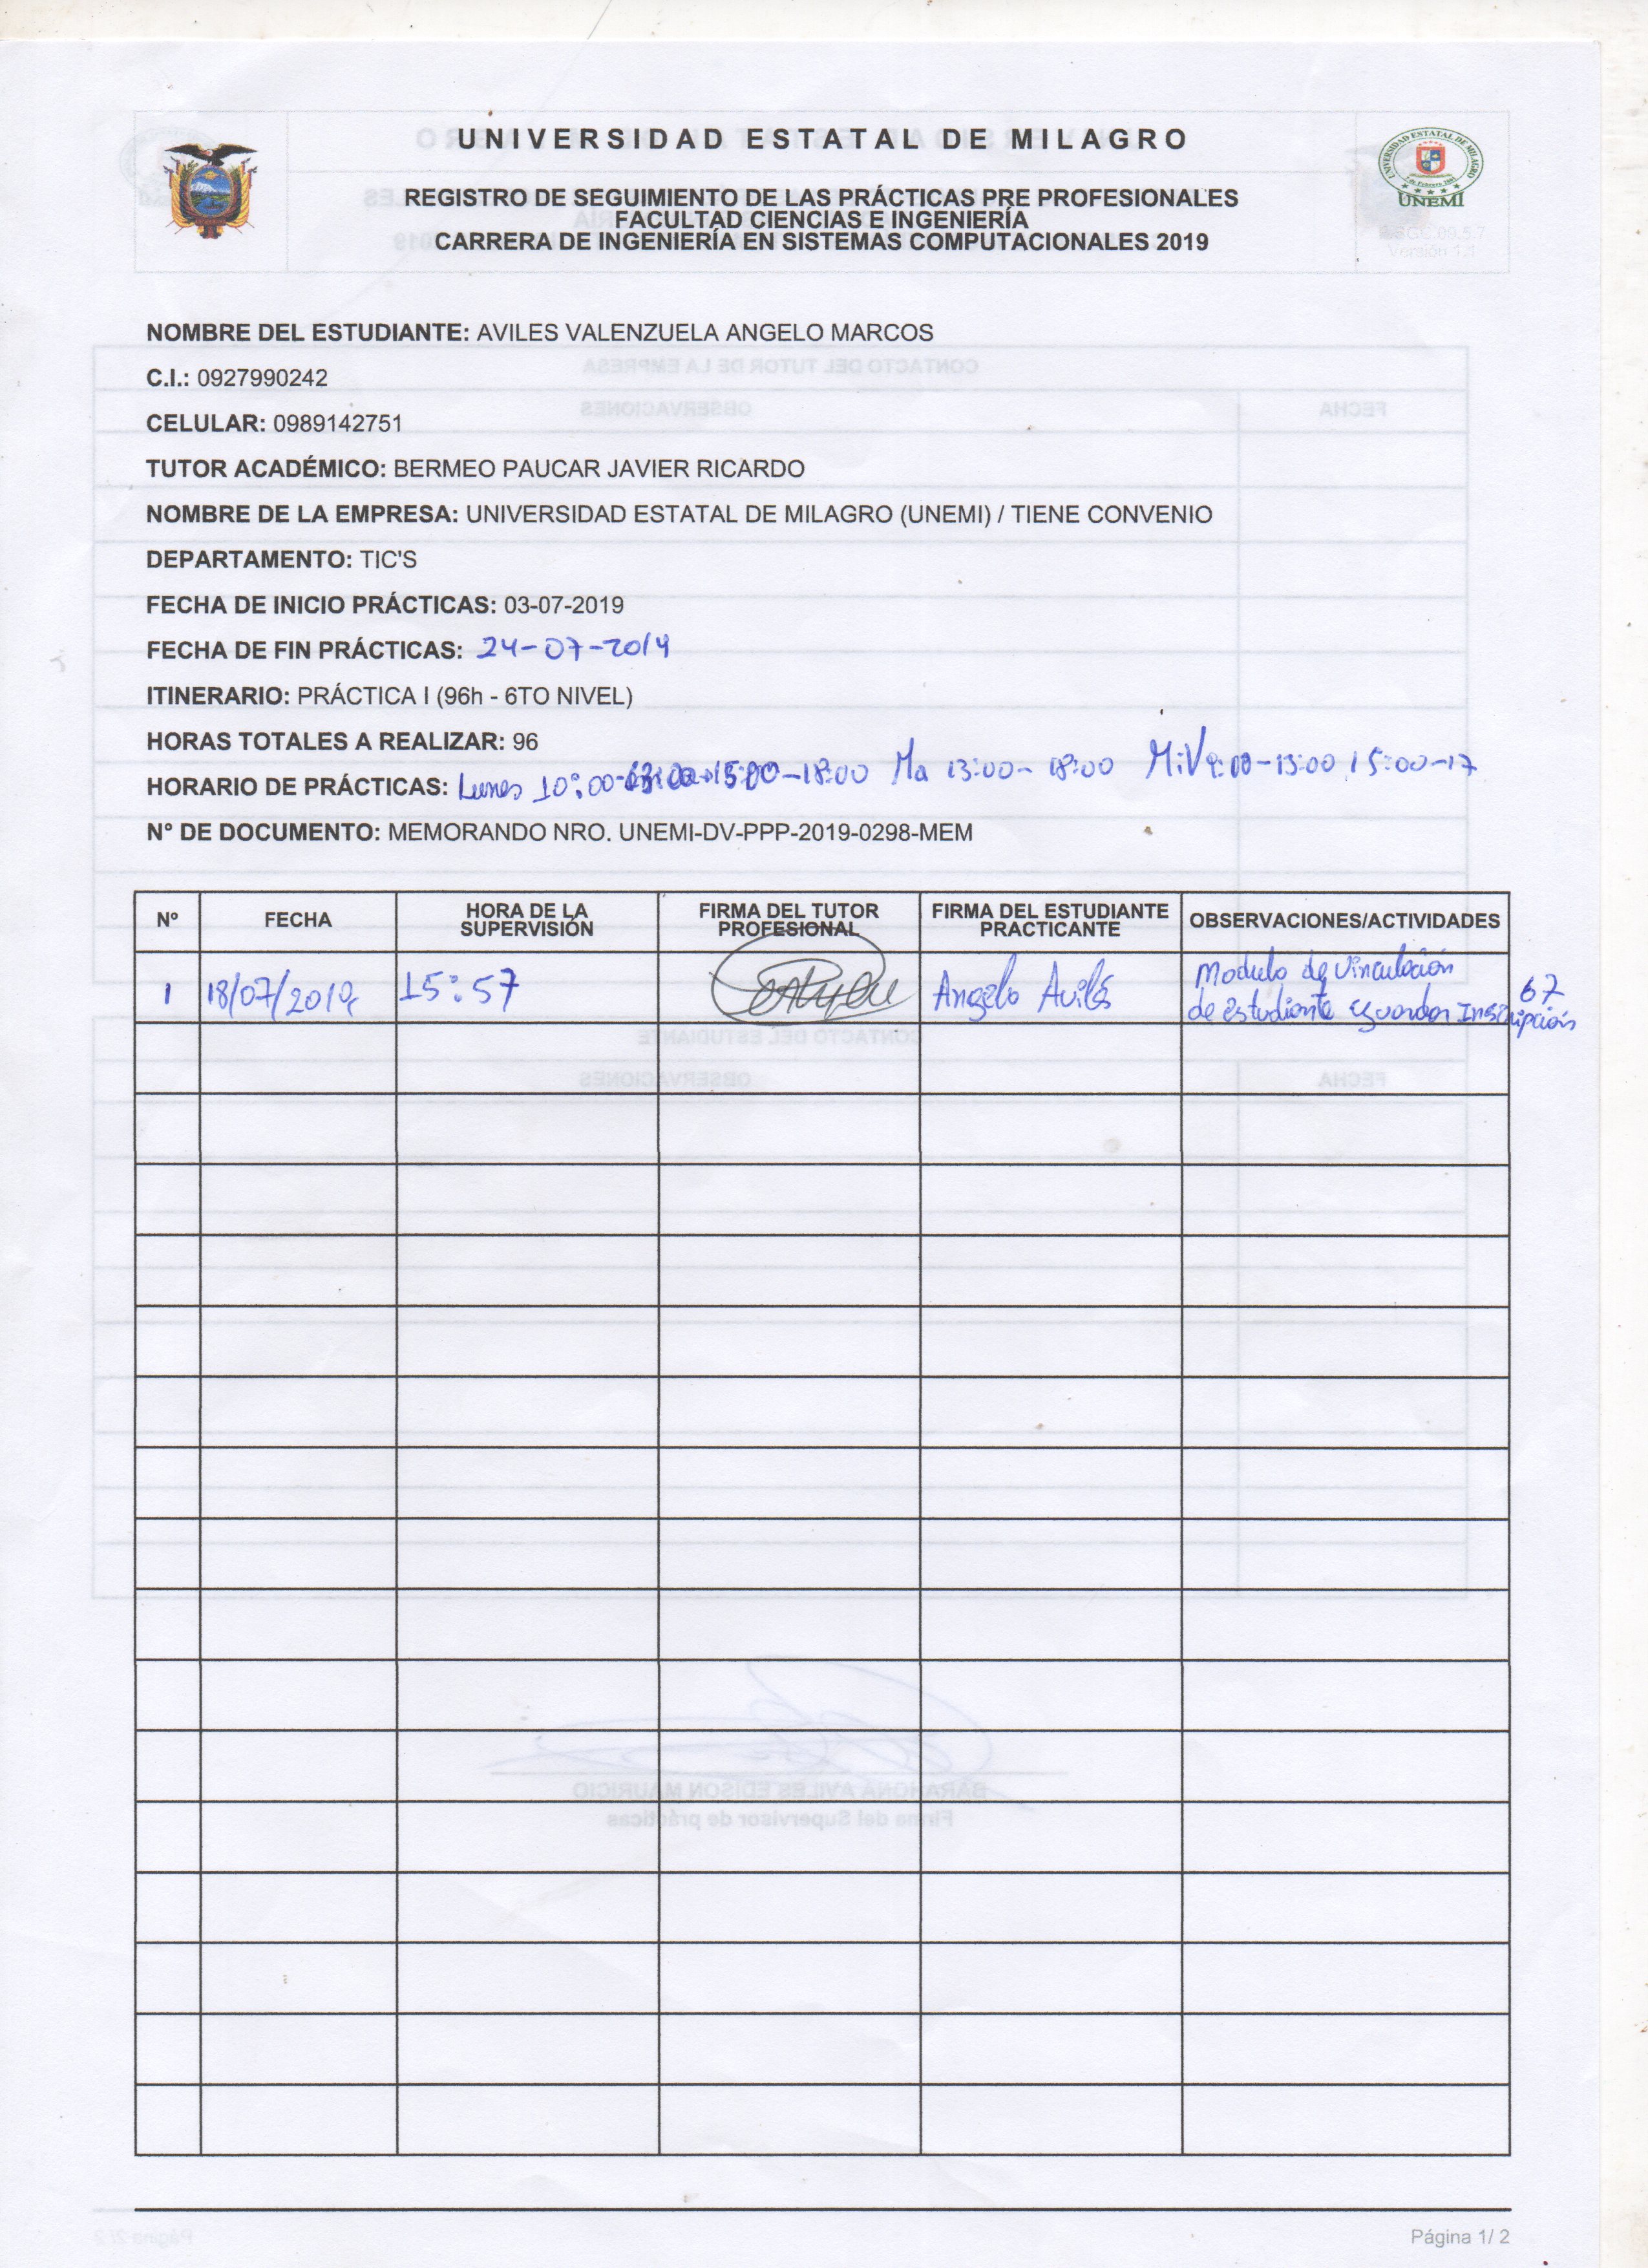 UNIVERSIDAD ESTATAL DE MILAGRO
REGISTRO DE SEGUIMIENTO DE LAS PRÁCTICAS PRE PROFESIONALES
FACULTAD CIENCIAS E INGENIERÍA
CARRERA DE INGENIERÍA EN SISTEMAS COMPUTACIONALES 2019
UNIVERSIDAD ESTATAL DE MILAGRO
UNEMI
SGC.09.5.7
Versión 1.1
NOMBRE DEL ESTUDIANTE: AVILES VALENZUELA ANGELO MARCOS
C.I.: 0927990242
CELULAR: 0989142751
TUTOR ACADÉMICO: BERMEO PAUCAR JAVIER RICARDO
NOMBRE DE LA EMPRESA: UNIVERSIDAD ESTATAL DE MILAGRO (UNEMI) / TIENE CONVENIO
DEPARTAMENTO: TIC'S
FECHA DE INICIO PRÁCTICAS: 03-07-2019
FECHA DE FIN PRÁCTICAS: 24-07-2019
ITINERARIO: PRÁCTICA I (96h - 6TO NIVEL)
HORAS TOTALES A REALIZAR: 96
HORARIO DE PRÁCTICAS: Lunes 10:00- 15:00-18:00 Ma 13:00-18:00 15:00-17
N° DE DOCUMENTO: MEMORANDO NRO. UNEMI-DV-PPP-2019-0298-MEM
Nº FECHA HORA DE LA SUPERVISIÓN FIRMA DEL TUTOR PROFESIONAL FIRMA DEL ESTUDIANTE PRACTICANTE OBSERVACIONES/ACTIVIDADES
1 18/07/2019 15:57 Angelo Avilés Modulo de vinculación
de estudiante Inscripción
67
CONTACTO DEL TUTOR DE LA EMPRESA
FECHA OBSERVACIONES
CONTACTO DEL ESTUDIANTE
FECHA OBSERVACIONES
BARAHONA AVILES EDISON MAURICIO
Firma del Supervisor de prácticas
Página 1/ 2
Página 2/ 2